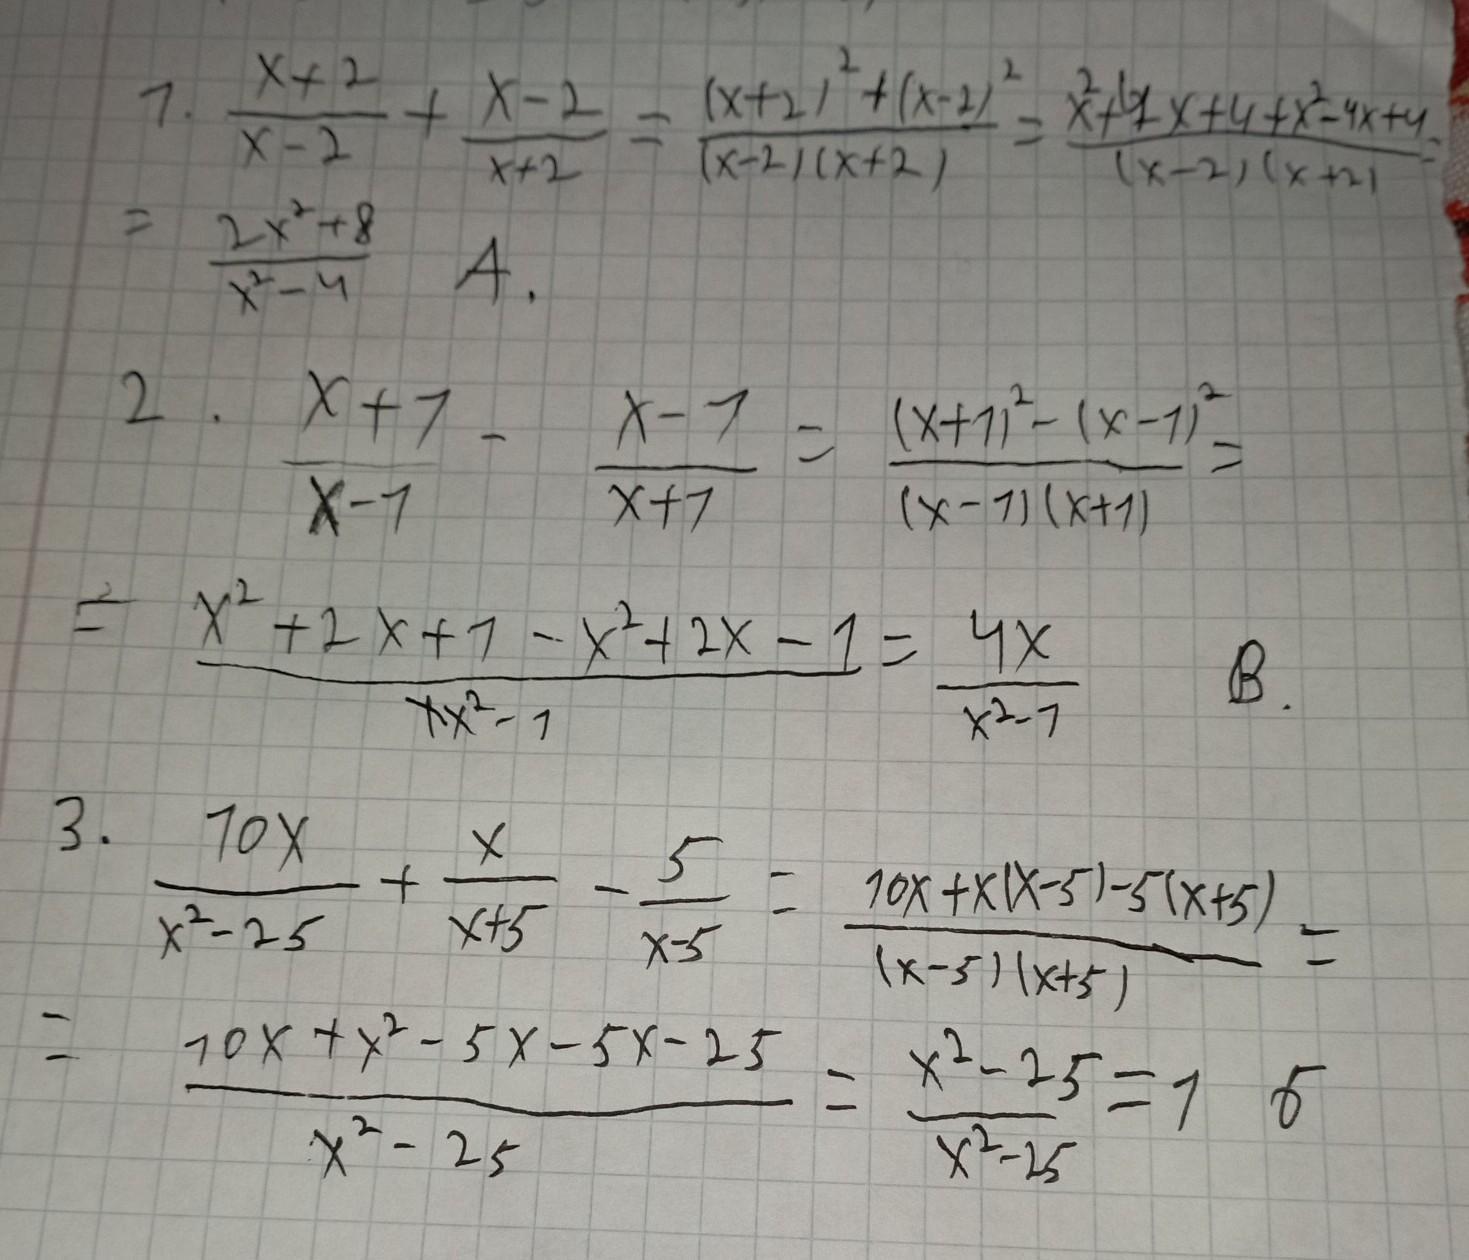 1. (x+2)/(x-2) + (x-2)/(x+2) = ((x+2)² + (x-2)²)/((x-2)(x+2)) = (x²+4x+4+x²-4x+4)/((x-2)(x+2)) =
= (2x²+8)/(x²-4) A.
2. (x+1)/(x-1) - (x-1)/(x+1) = ((x+1)² - (x-1)²)/((x-1)(x+1)) =
= (x²+2x+1-x²+2x-1)/(x²-1) = 4x/(x²-1) В.
3. 10x/(x²-25) + x/(x+5) - 5/(x-5) = (10x+x(x-5)-5(x+5))/((x-5)(x+5)) =
= (10x+x²-5x-5x-25)/(x²-25) = (x²-25)/(x²-25) = 1 б